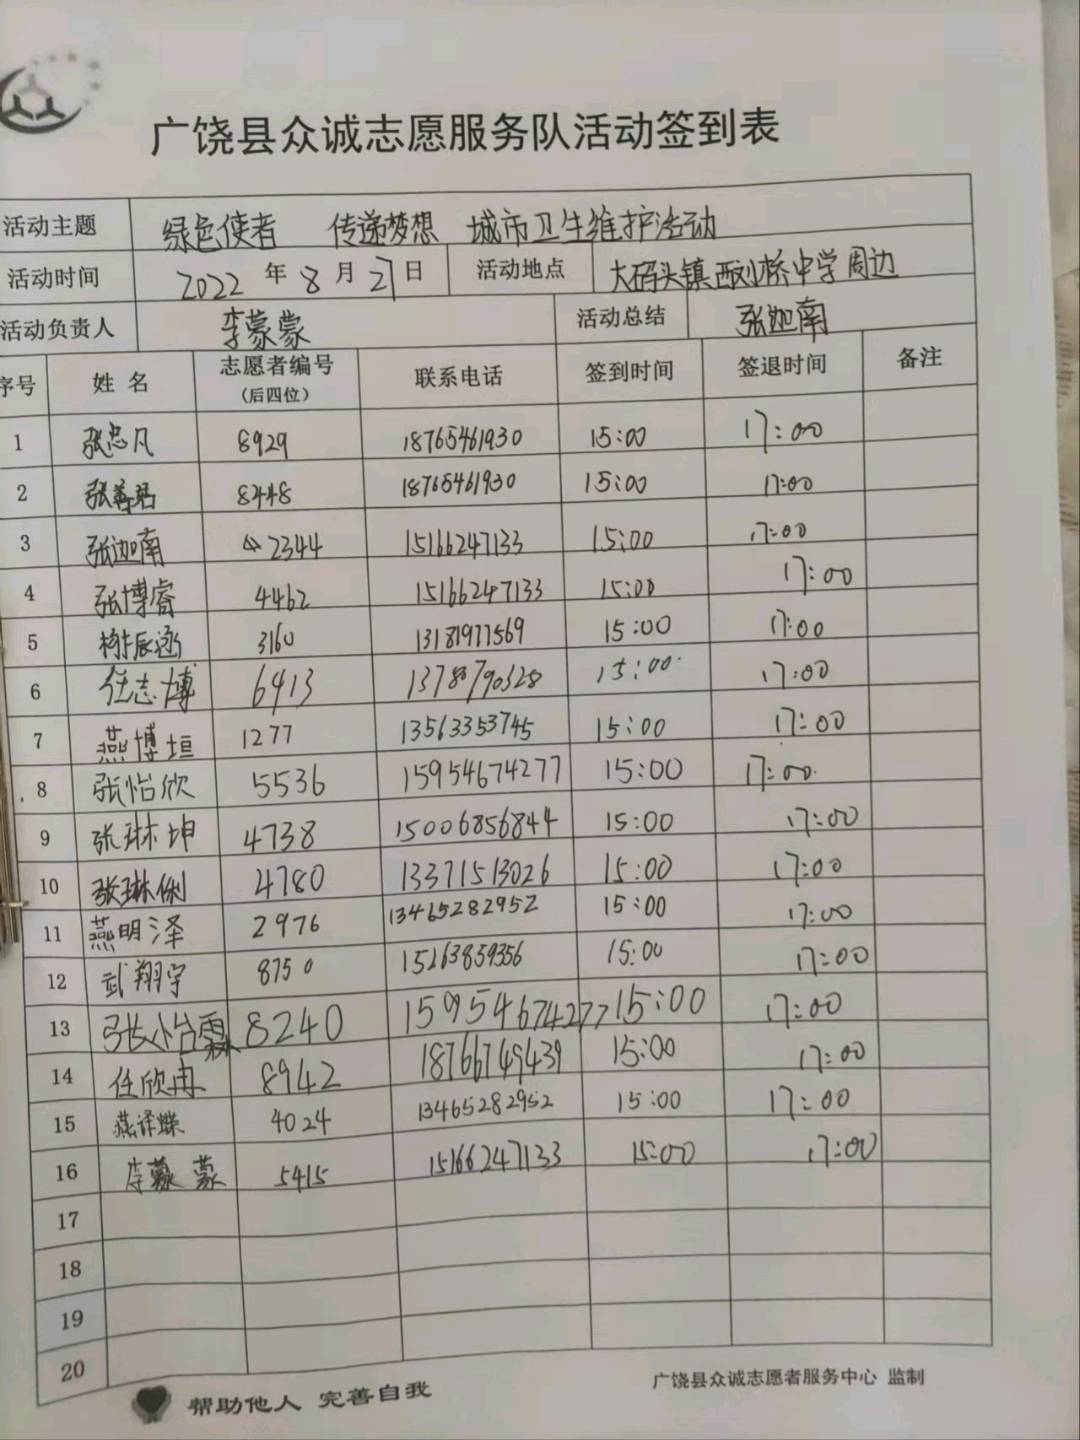 广饶县众诚志愿服务队活动签到表
活动主题 绿色使者 传递梦想 城市卫生维护活动
活动时间 2022 年 8 月 21 日 活动地点 大码头镇西刘桥中学周边
活动负责人 李蒙蒙 活动总结 张迦南
序号 姓 名 志愿者编号 (后四位) 联系电话 签到时间 签退时间 备注
1 张忠凡 8929 18765461930 15:00 17:00
2 张善君 8448 18765461930 15:00 17:00
3 张迦南 2344 15166247133 15:00 17:00
4 张博睿 4462 15166247133 15:00 17:00
5 辰涵 3160 13181977569 15:00 17:00
6 任志博 6413 13787790328 15:00 17:00
7 燕博垣 1277 13563353745 15:00 17:00
8 张怡欣 5536 15954674277 15:00 17:00
9 张琳坤 4738 15006856844 15:00 17:00
10 张琳俐 4780 13371513026 15:00 17:00
11 燕明泽 2976 13465282952 15:00 17:00
12 武翔宇 8750 15263859356 15:00 17:00
13 张小台霖 8240 15954674277 15:00 17:00
14 任欣冉 8942 18766749439 15:00 17:00
15 燕译蝶 4024 13465282952 15:00 17:00
16 李蒙蒙 5415 15166247133 15:00 17:00
17
18
19
20
帮助他人 完善自我 广饶县众诚志愿者服务中心 监制